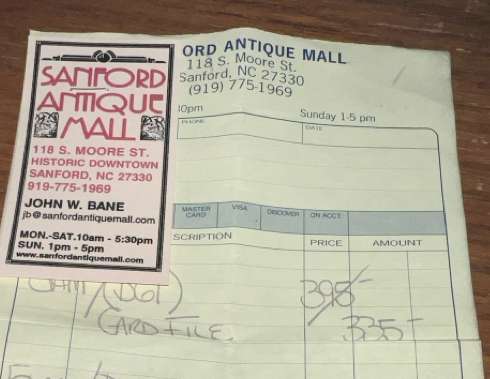 SANFORD
ANTIQUE
MALL
118 S. MOORE ST.
HISTORIC DOWNTOWN
SANFORD, NC 27330
919-775-1969
JOHN W. BANE
jb@sanfordantiquemall.com
MON.-SAT.10am - 5:30pm
SUN. 1pm - 5pm
www.sanfordantiquemall.com
ORD ANTIQUE MALL
118 S. Moore St.
Sanford, NC 27330
(919) 775-1969
:0pm
Sunday 1-5 pm
PHONE
DATE
MASTER CARD
VISA
DISCOVER
ON ACCT.
SCRIPTION
PRICE
AMOUNT
398-
CARD FILE.
335-